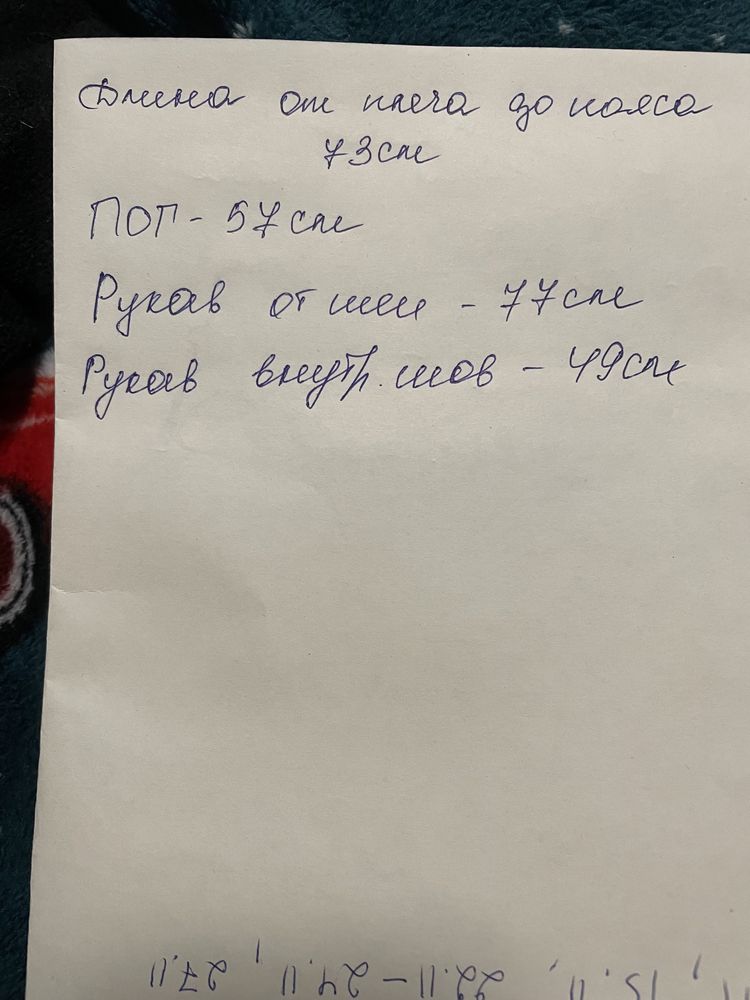 Длина от плеча до пояса
73см
ПОГ - 57см
Рукав от шеи - 77см
Рукав внутр. шов - 49см
22.11 - 24.11, 27.11